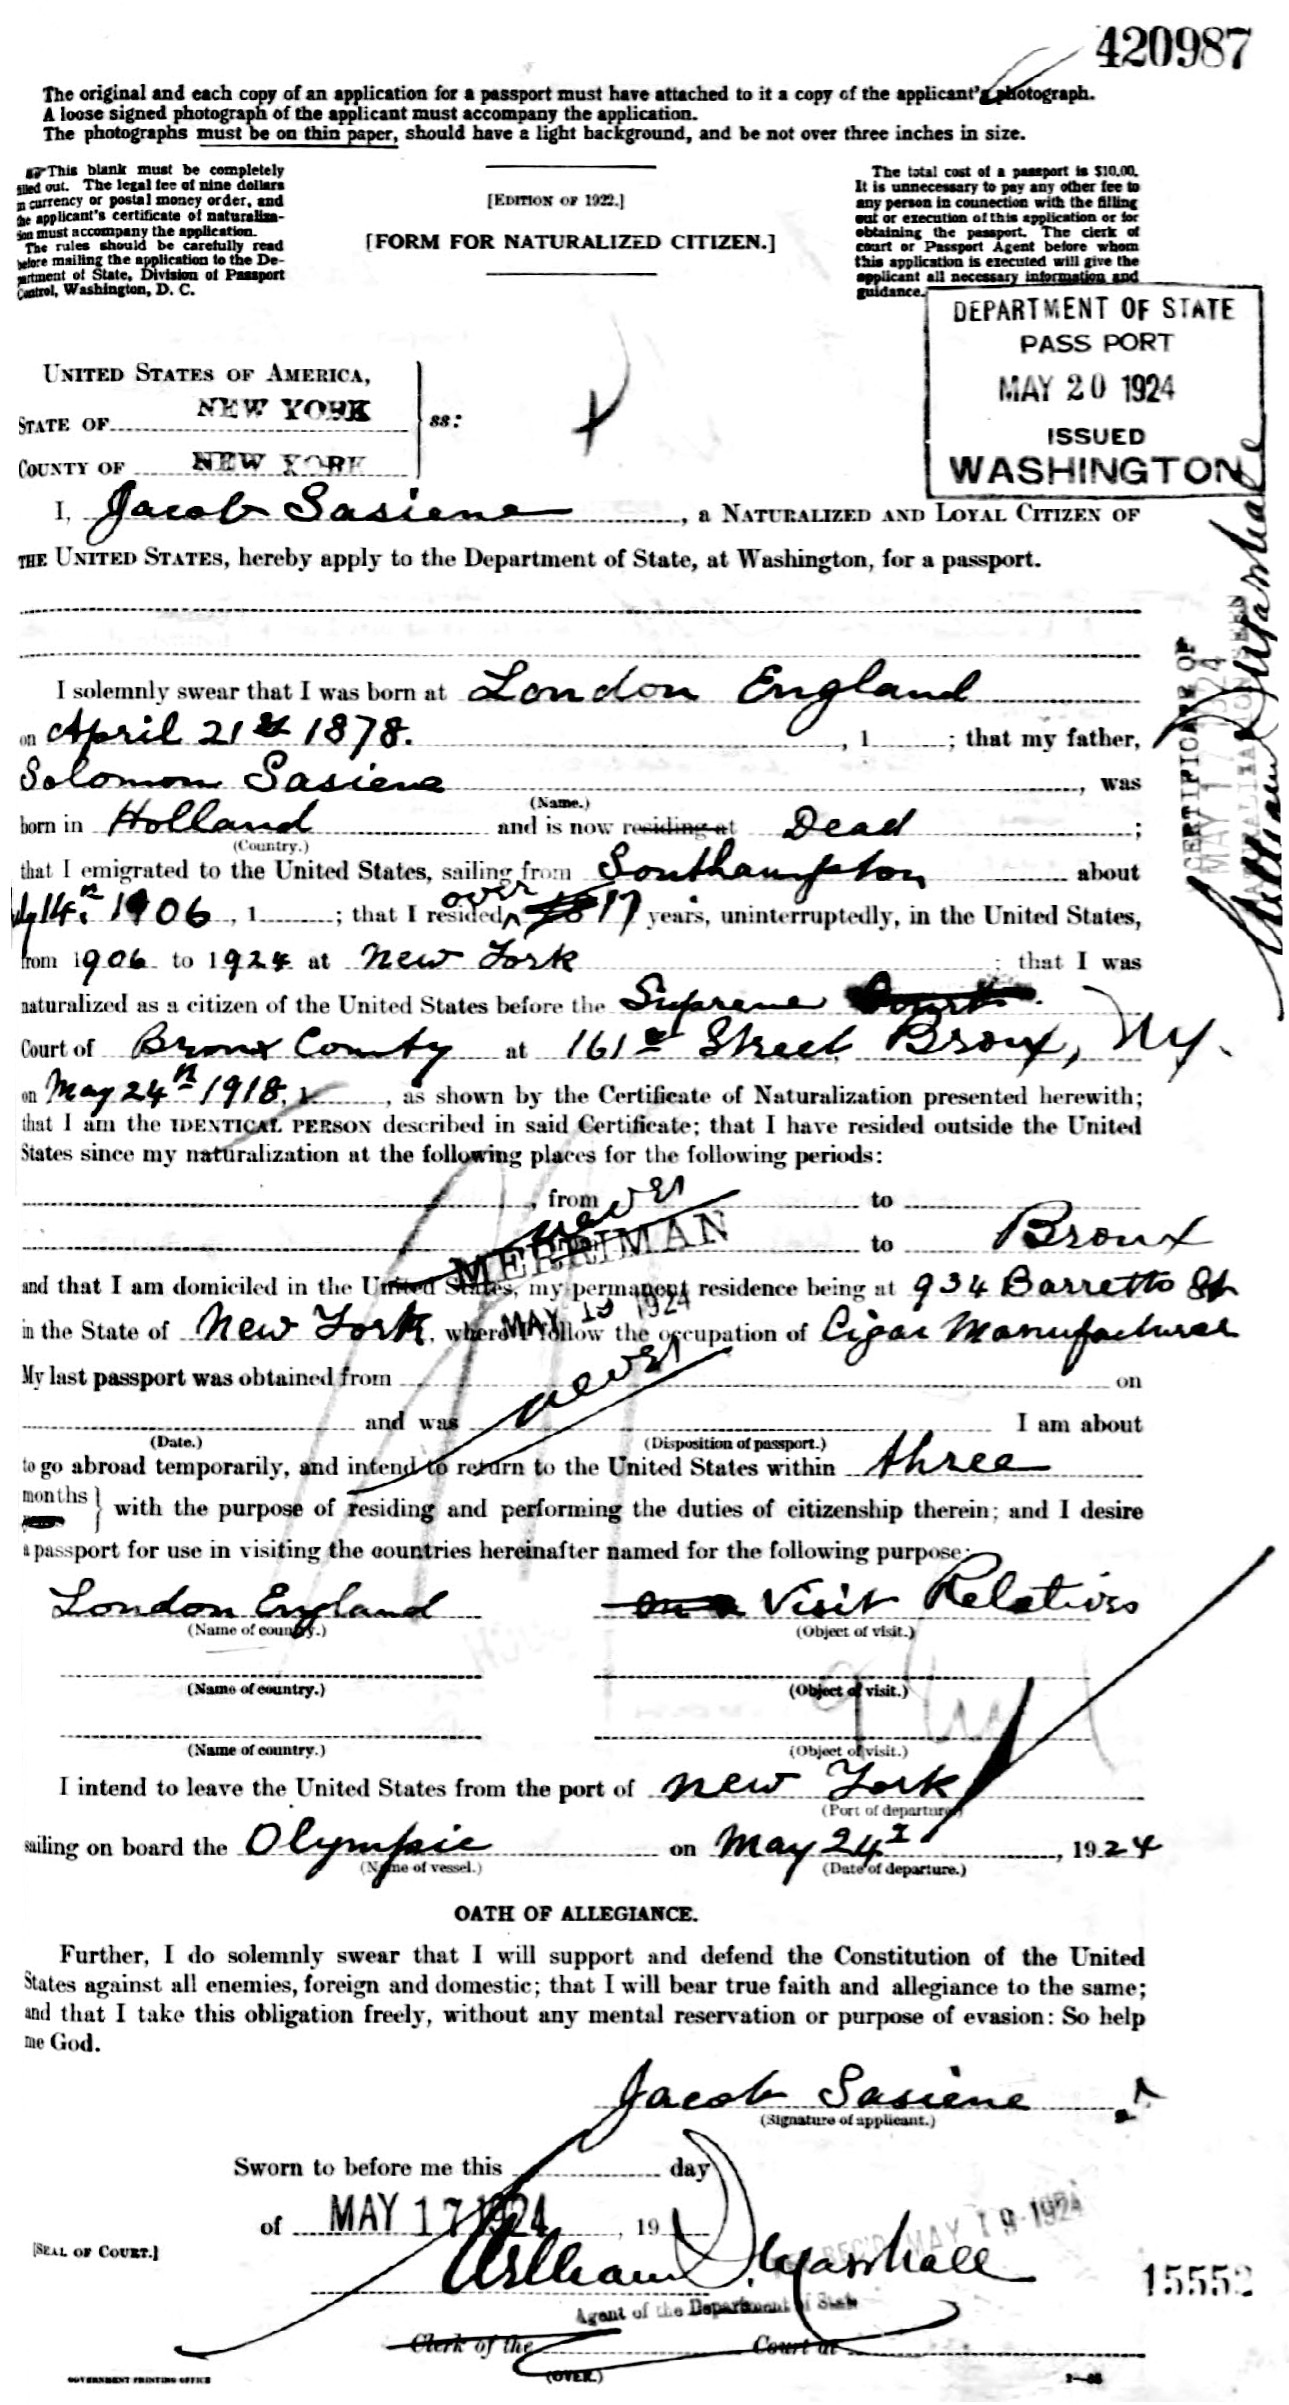 420987
The original and each copy of an application for a passport must have attached to it a copy of the applicant's photograph.
A loose signed photograph of the applicant must accompany the application.
The photographs must be on thin paper, should have a light background, and be not over three inches in size.
This blank must be completely
filled out. The legal fee of nine dollars
in currency or postal money order, and
the applicant's certificate of naturaliza-
tion must accompany the application.
The rules should be carefully read
before mailing the application to the De-
partment of State, Division of Passport
Control, Washington, D. C.
[EDITION OF 1922.]
[FORM FOR NATURALIZED CITIZEN.]
The total cost of a passport is $10.00.
It is unnecessary to pay any other fee to
any person in connection with the filling
out or execution of this application or for
obtaining the passport. The clerk of
court or Passport Agent before whom
this application is executed will give the
applicant all necessary information and
guidance.
DEPARTMENT OF STATE
PASS PORT
MAY 20 1924
ISSUED
WASHINGTON
UNITED STATES OF AMERICA,
STATE OF NEW YORK
COUNTY OF NEW YORK
ss:
I, Jacob Sasiene, a NATURALIZED AND LOYAL CITIZEN OF
THE UNITED STATES, hereby apply to the Department of State, at Washington, for a passport.
I solemnly swear that I was born at London England
on April 21st 1878. , 1 ; that my father,
Solomon Sasiene , was
(Name.)
born in Holland and is now residing at Dead ;
(Country.)
that I emigrated to the United States, sailing from Southampton about
July 14th 1906 , 1 ; that I resided over 17 years, uninterruptedly, in the United States,
from 1906 to 1924 at New York ; that I was
naturalized as a citizen of the United States before the Supreme Court
Court of Bronx County at 161st Street Bronx, NY.
on May 24th 1918, 1 , as shown by the Certificate of Naturalization presented herewith;
that I am the IDENTICAL PERSON described in said Certificate; that I have resided outside the United
States since my naturalization at the following places for the following periods:
, from never to
to Bronx
MERRIMAN
and that I am domiciled in the United States, my permanent residence being at 934 Barretto St
MAY 19 1924
in the State of New York, where I follow the occupation of Cigar Manufacturer
My last passport was obtained from never on
and was I am about
(Date.) (Disposition of passport.)
to go abroad temporarily, and intend to return to the United States within three
months
years } with the purpose of residing and performing the duties of citizenship therein; and I desire
a passport for use in visiting the countries hereinafter named for the following purpose:
London England Visit Relatives
(Name of country.) (Object of visit.)
(Name of country.) (Object of visit.)
(Name of country.) (Object of visit.)
I intend to leave the United States from the port of New York
(Port of departure.)
sailing on board the Olympic on May 24th, 1924
(Name of vessel.) (Date of departure.)
OATH OF ALLEGIANCE.
Further, I do solemnly swear that I will support and defend the Constitution of the United
States against all enemies, foreign and domestic; that I will bear true faith and allegiance to the same;
and that I take this obligation freely, without any mental reservation or purpose of evasion: So help
me God.
Jacob Sasiene
(Signature of applicant.)
Sworn to before me this day
of MAY 17 1924, 19
REC'D MAY 19 1924
[SEAL OF COURT.]
William D. Marshall
15552
Agent of the Department of State
Clerk of the Court at
(OVER.)
GOVERNMENT PRINTING OFFICE
CERTIFICATE OF
MAY 17 1924
NATURALIZATION SEEN
William D Marshall